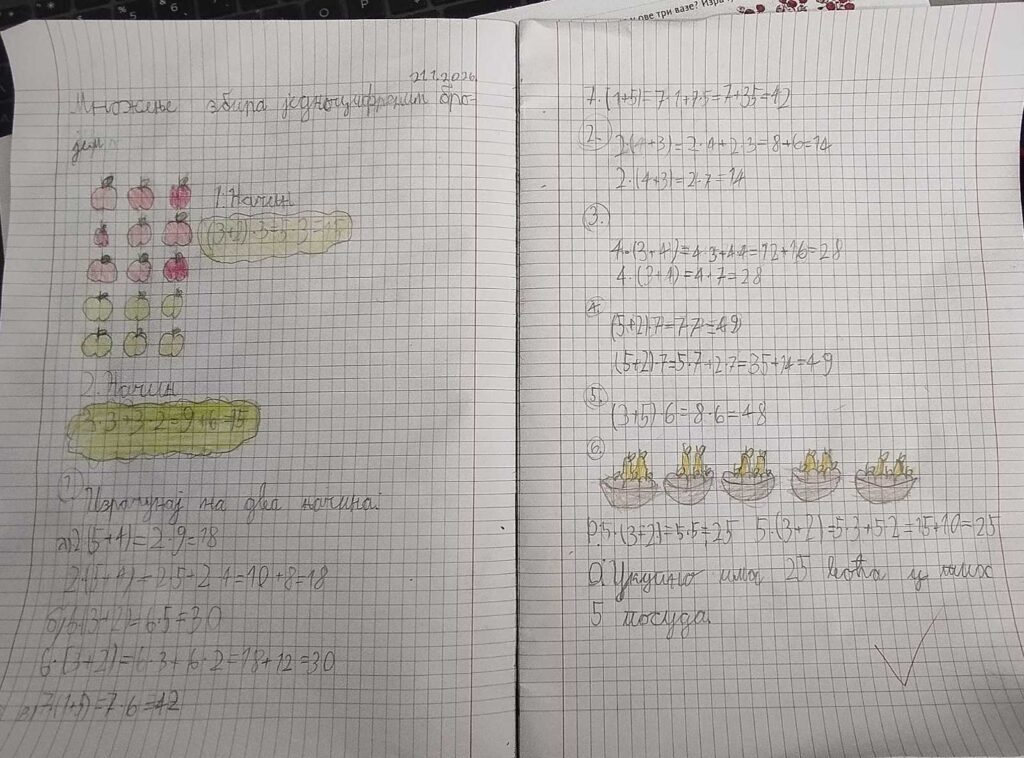 21.1.2026.
Множење збира једноцифреним бро-
јем
1. Начин
(3+2)·3=5·3=15
2. Начин
3·3+3·2=9+6=15
1. Израчунај на два начина.
а) 2·(5+4)=2·9=18
2·(5+4)=2·5+2·4=10+8=18
б) 6·(3+2)=6·5=30
6·(3+2)=6·3+6·2=18+12=30
в) 7·(1+5)=7·6=42
ове три вазе?
7·(1+5)=7·1+7·5=7+35=42
2. 2·(4+3)=2·4+2·3=8+6=14
2·(4+3)=2·7=14
3.
4·(3+4)=4·3+4·4=12+16=28
4·(3+4)=4+7=28
4.
(5+2)·7=7·7=49
(5+2)·7=5·7+2·7=35+14=49
5. (3+5)·6=8·6=48
6.
Р: 5·(3+2)=5·5=25 5·(3+2)=5·3+5·2=15+10=25
О: Укупно има 25 у
5 посуда.